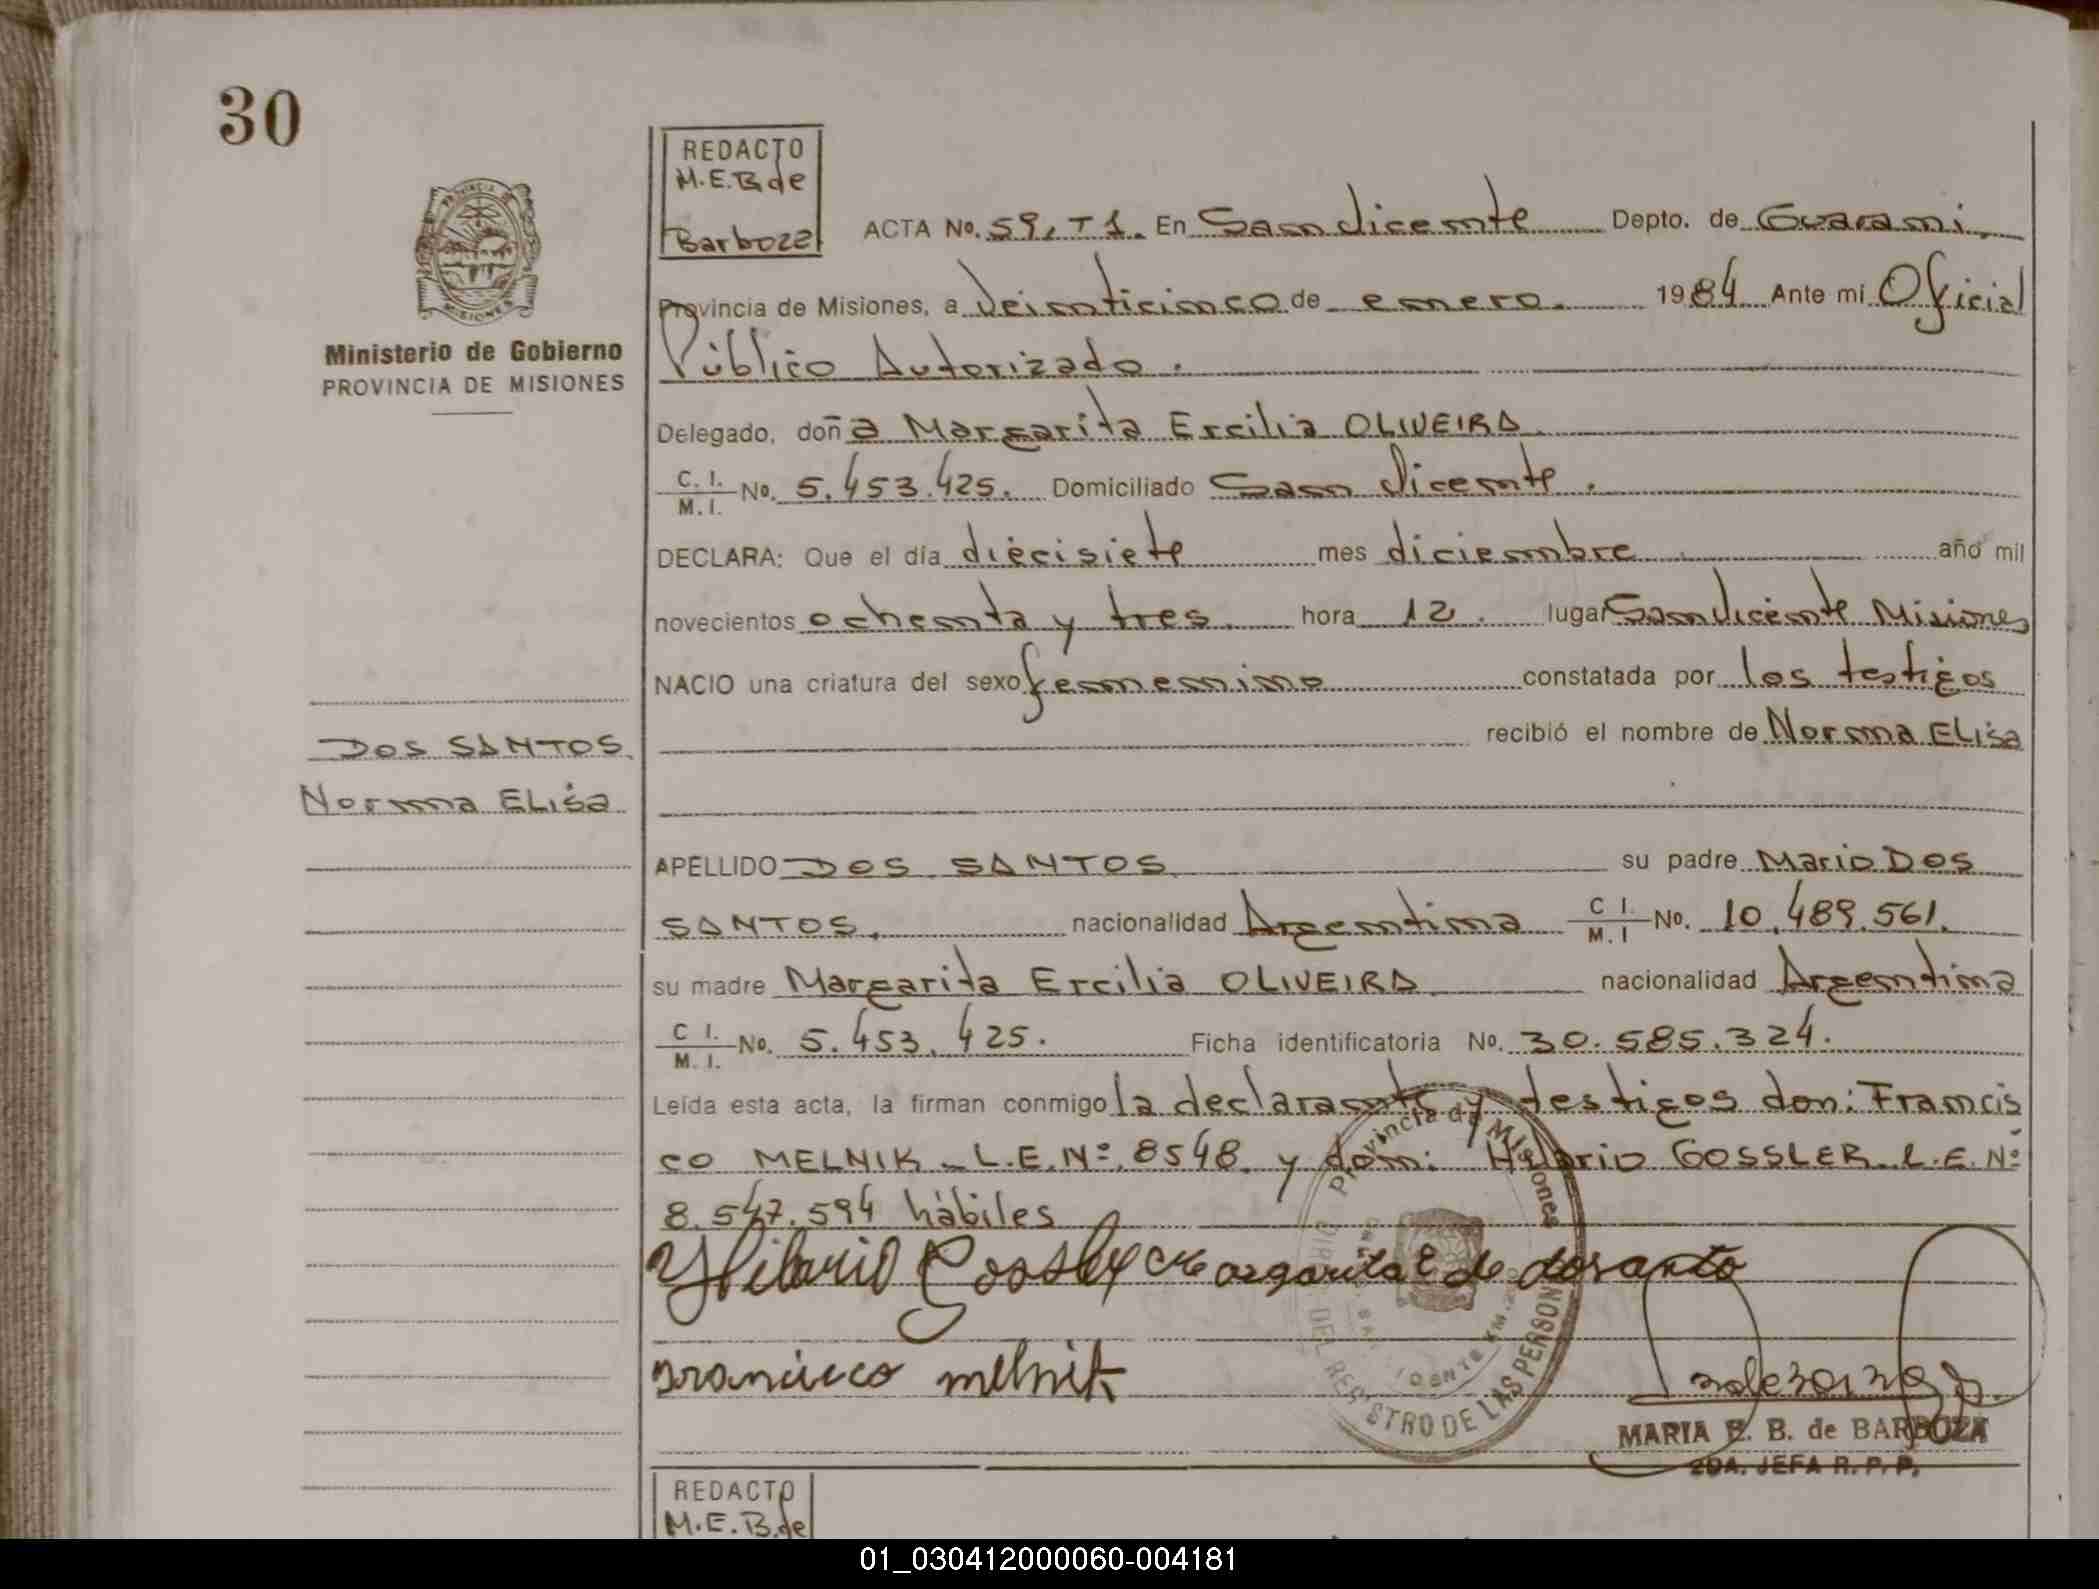 30
REDACTO
M.E.B. de
Barboza
PROVINCIA DE
MISIONES
Ministerio de Gobierno
PROVINCIA DE MISIONES
ACTA No. 59, T1. En San Vicente Depto. de Guarani.
Provincia de Misiones, a Veinticinco de enero. 1984 Ante mi Oficial
Público Autorizado.
Delegado, doña Margarita Ercilia OLIVEIRA
C. I. / M. I. No. 5.453.425. Domiciliado San Vicente.
DECLARA: Que el día diecisiete mes diciembre año mil
novecientos ochenta y tres. hora 12. lugar San Vicente Misiones
NACIO una criatura del sexo femenino constatada por los testigos
recibió el nombre de Norma Elisa
DOS SANTOS
Norma Elisa
APELLIDO DOS SANTOS su padre Mario DOS
SANTOS. nacionalidad Argentina C I. / M. I No. 10.489.561.
su madre Margarita Ercilia OLIVEIRA nacionalidad Argentina
C I. / M. I. No. 5.453.425. Ficha identificatoria No. 30.585.324.
Leída esta acta, la firman conmigo la declarante y testigos don: Francis
co MELNIK - L.E.Nº 8548. y don: Hilario GOSSLER. L.E.Nº
8.547.594 hábiles
Hilario Gossler Margarita E de dosanto
Francisco melnik
Provincia de Misiones
DEL REGISTRO DE LAS PERSON
MARIA E. B. de BARBOZA
2DA. JEFA R. P. P.
REDACTO
M.E.B. de
01_030412000060-004181